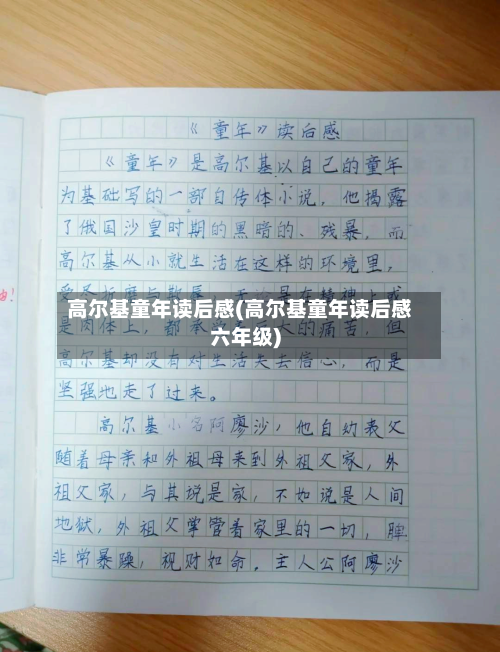 《童年》读后感
《童年》是高尔基以自己的童年
为基础写的一部自传体小说，他揭露
了俄国沙皇时期的黑暗的、残暴，而
高尔基从小就生活在这样的环境里，
高尔基童年读后感(高尔基童年读后感
六年级)
是肉体上，都承 大的痛苦，但
高尔基却没有对生活失去信心，而是
坚强地走了过来。
高尔基小名阿廖沙，他自幼丧父
随着母亲和外祖母来到外祖父家，外
祖父家，与其说是家，不如说是人间
地狱，外祖父掌管着家里的一切，脾
非常暴躁，视财如命。主人公阿廖沙